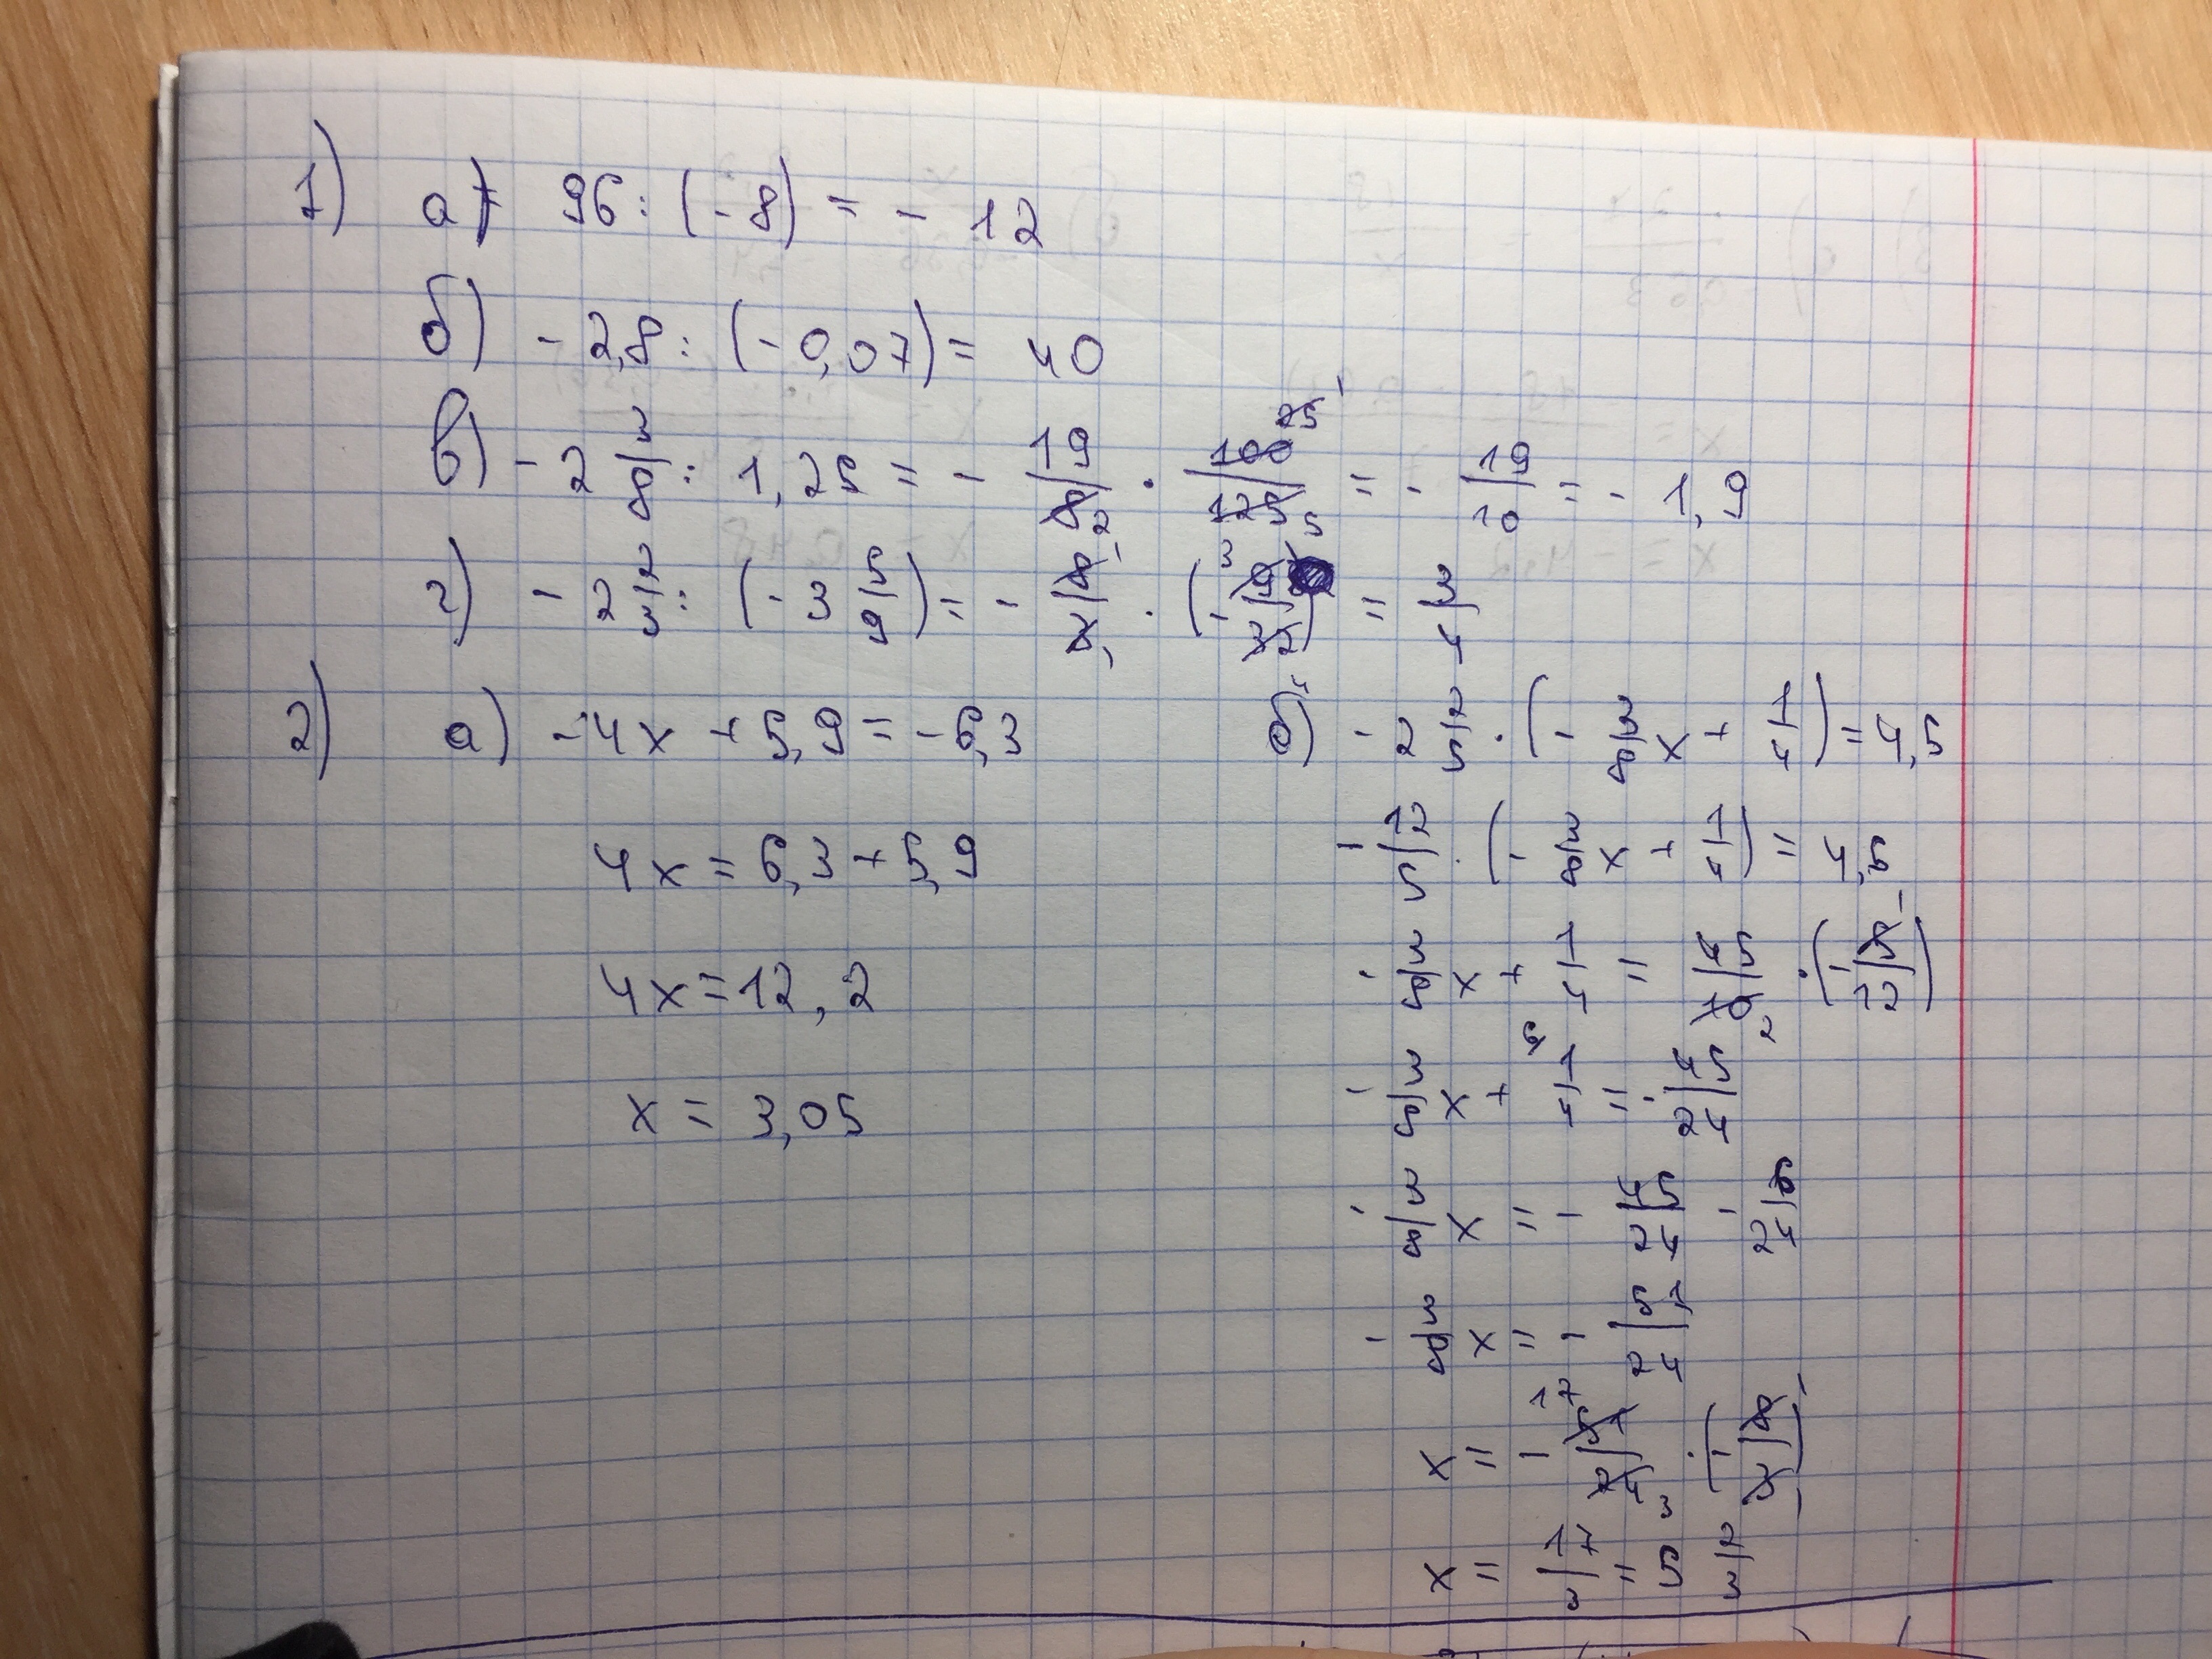 1) а) 96 : (-8) = -12
б) -2,8 : (-0,07) = 40
в) -2 3/8 : 1,25 = - 19/8 · 100/125 = - 19/10 = -1,9
г) -2 2/3 : (-3 5/9) = - 8/3 · (- 9/32) = 3/4
2) а) -4x + 5,9 = -6,3
4x = 6,3 + 5,9
4x = 12,2
x = 3,05
б) -2 2/5 · (- 3/8 x + 1/4) = 4,5
- 12/5 · (- 3/8 x + 1/4) = 4,5
- 3/8 x + 1/4 = 45/10 · (- 5/12)
- 3/8 x + 1/4 = - 45/24
- 3/8 x = - 45/24 - 6/24
- 3/8 x = - 51/24
x = - 51/24 · (- 8/3)
x = 17/3 = 5 2/3